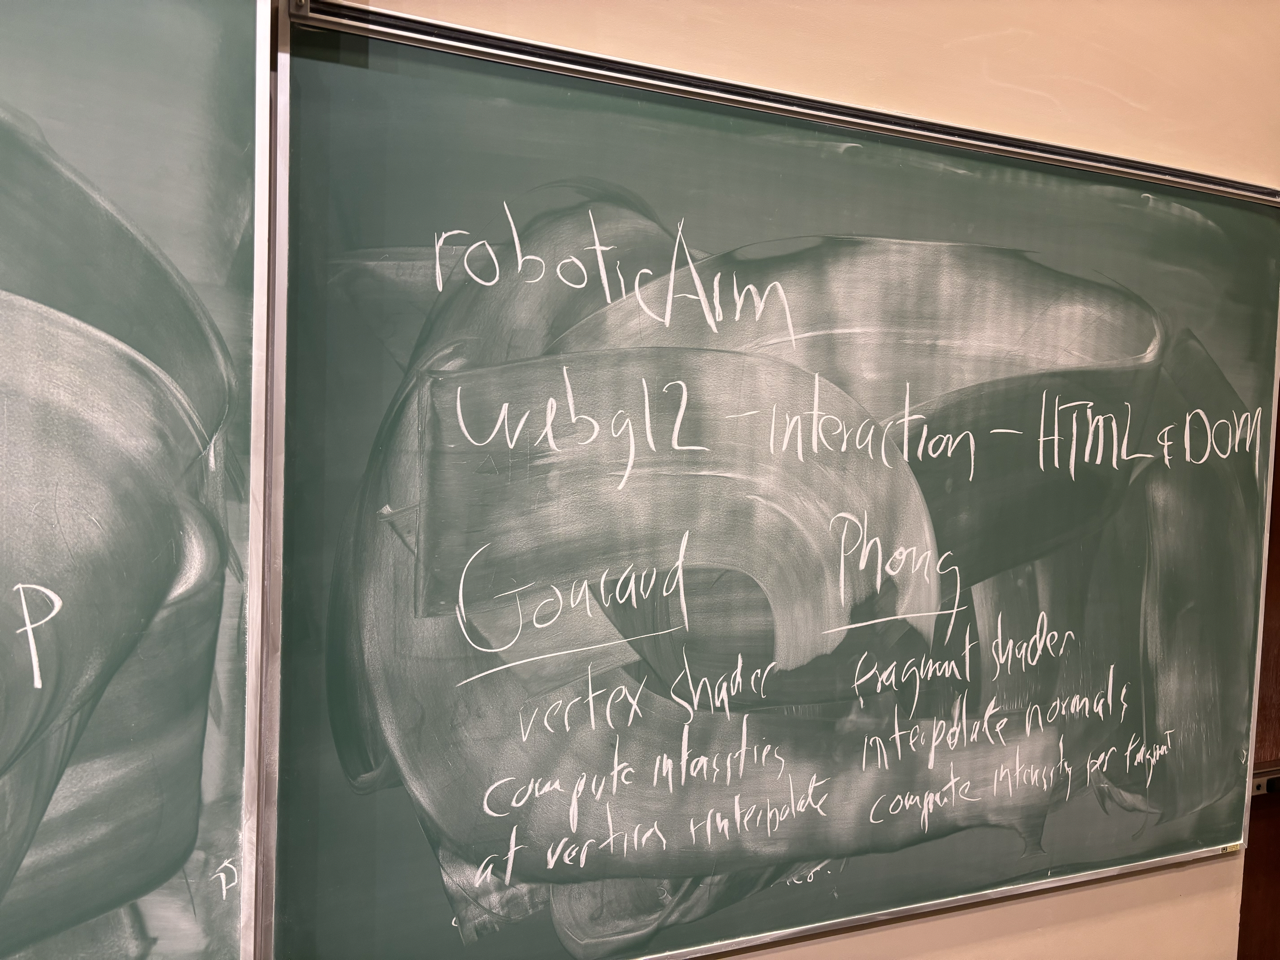 P
roboticArm
webgl2 - interaction - HTML & DOM
Gouraud
vertex shader
compute intensities
at vertices + interpolate
Phong
fragment shader
interpolate normals
compute intensity per fragment
P